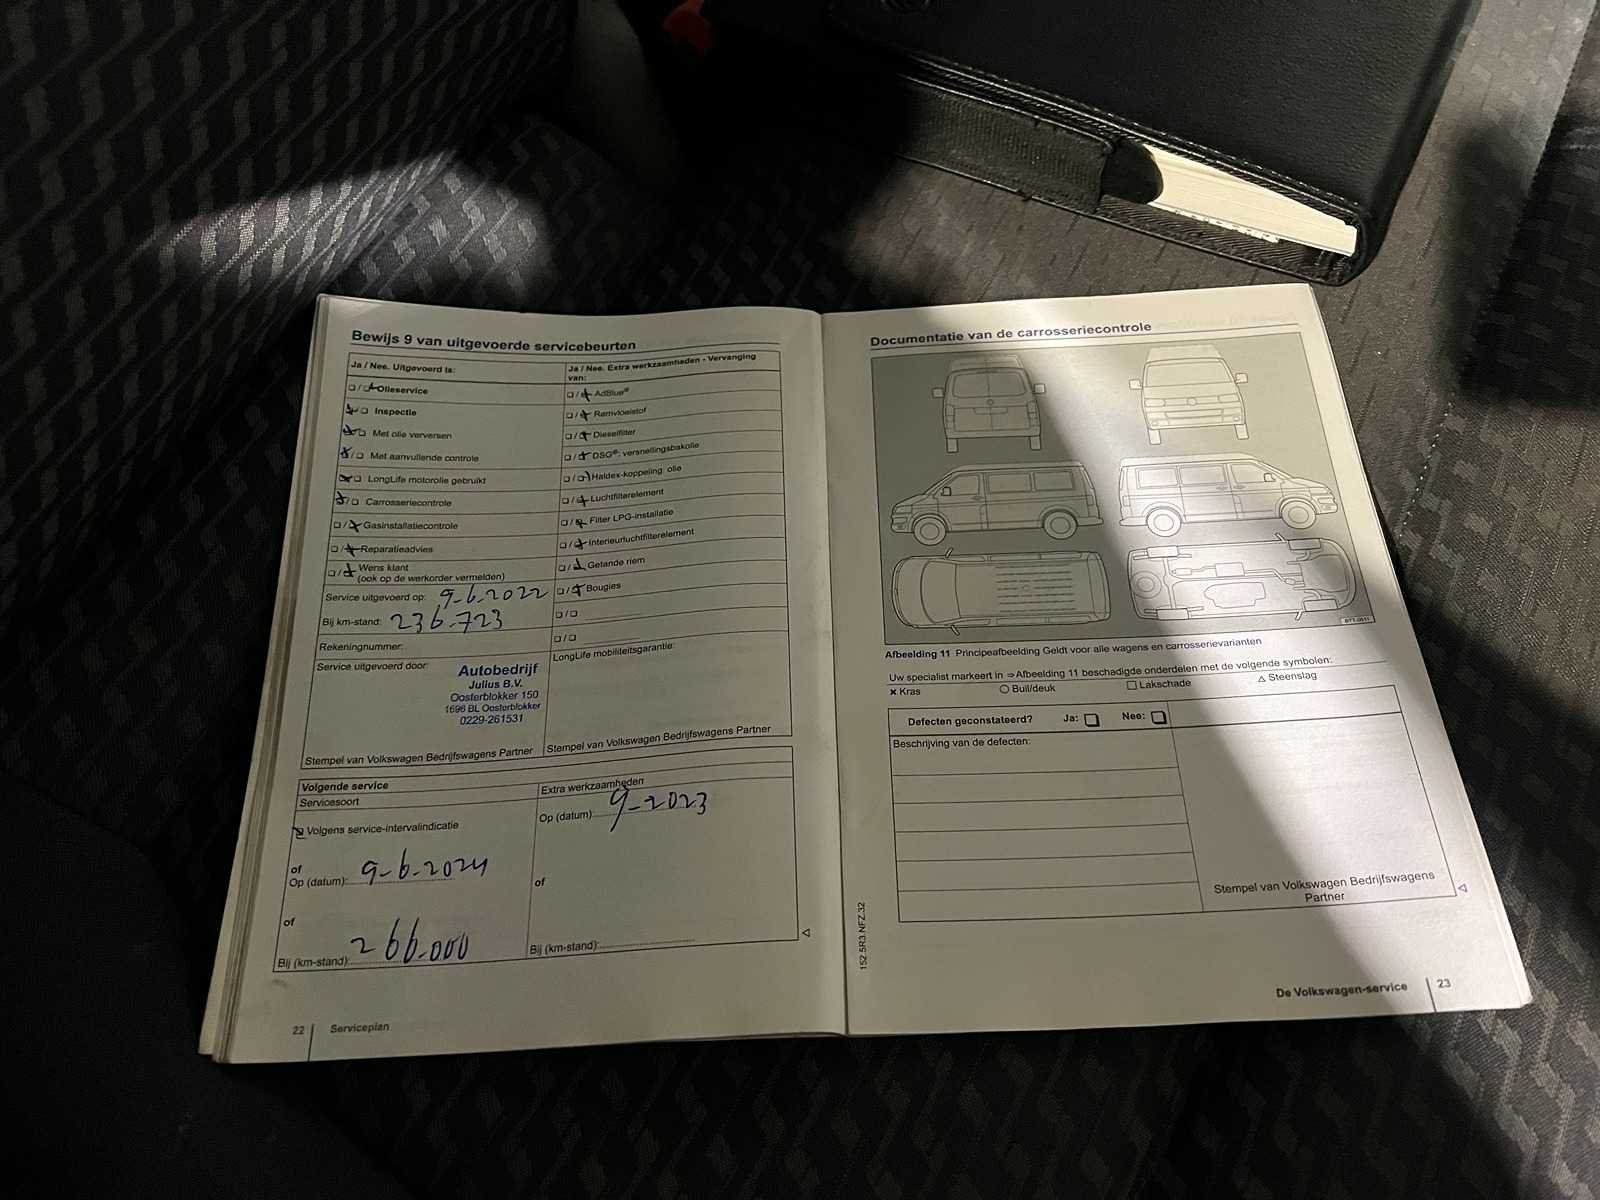 Bewijs 9 van uitgevoerde servicebeurten
Ja / Nee. Uitgevoerd is:
Olieservice
Inspectie
Met olie verversen
Met aanvullende controle
LongLife motorolie gebruikt
Carrosseriecontrole
Gasinstallatiecontrole
Reparatieadvies
Wens klant
(ook op de werkorder vermelden)
Service uitgevoerd op: 9-6-2022
Bij km-stand: 236.723
Rekeningnummer:
Service uitgevoerd door:
Autobedrijf
Julius B.V.
Oosterblokker 150
1696 BL Oosterblokker
0229-261531
Stempel van Volkswagen Bedrijfswagens Partner
Ja / Nee. Extra werkzaamheden - Vervanging
van:
AdBlue®
Remvloeistof
Dieselfilter
DSG®: versnellingsbakolie
Haldex-koppeling olie
Luchtfilterelement
Filter LPG-installatie
Interieurluchtfilterelement
Getande riem
Bougies
LongLife mobiliteitsgarantie:
Stempel van Volkswagen Bedrijfswagens Partner
Volgende service
Servicesoort
Volgens service-intervalindicatie
of
Op (datum): 9-6-2024
of
Bij (km-stand): 266.000
Extra werkzaamheden
Op (datum): 9-2023
of
Bij (km-stand):
22 | Serviceplan
Documentatie van de carrosseriecontrole
Afbeelding 11 Principeafbeelding Geldt voor alle wagens en carrosserievarianten
Uw specialist markeert in ⇒Afbeelding 11 beschadigde onderdelen met de volgende symbolen:
× Kras ○ Buil/deuk □ Lakschade △ Steenslag
Defecten geconstateerd? Ja: □ Nee: □
Beschrijving van de defecten:
Stempel van Volkswagen Bedrijfswagens
Partner
152.5R3.NFZ.32
De Volkswagen-service | 23